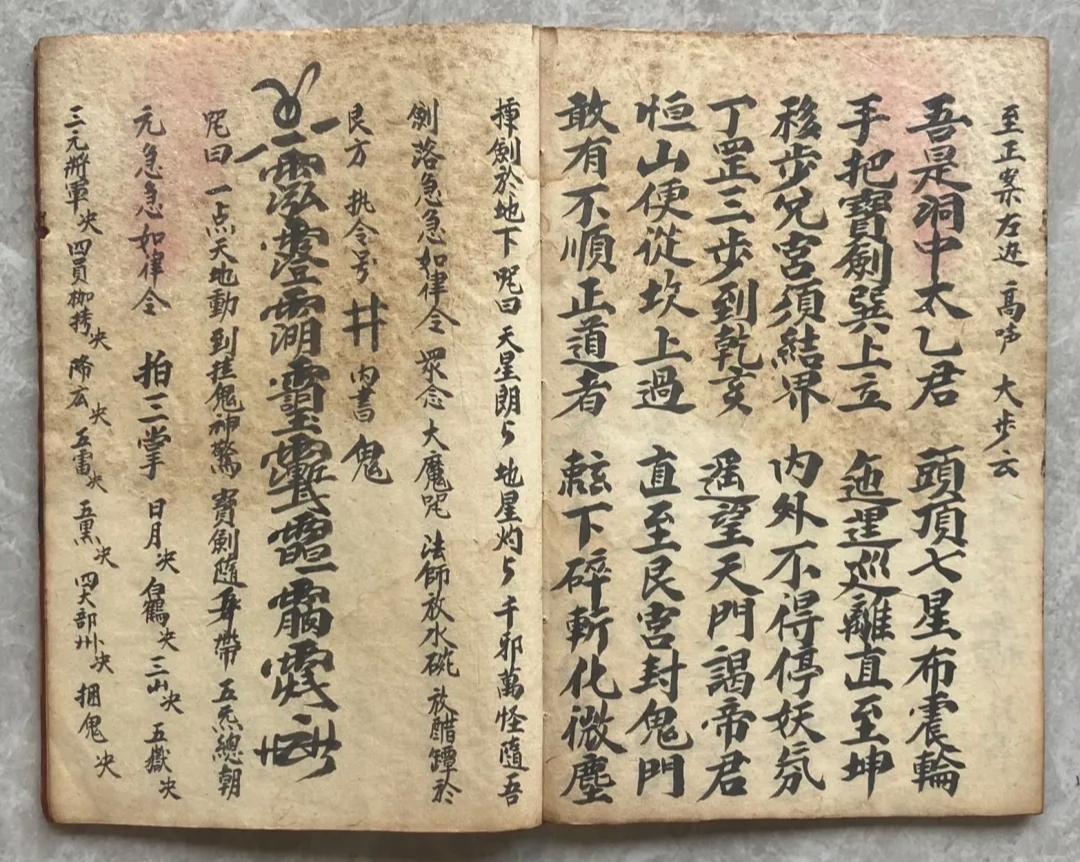 至正案左边 高声 大步云
吾是洞中太乙君 頭頂七星布震輪
手把寳劍巽上立 迤逞巡離直至坤
移步兑宮須結界 内外不得停妖氛
丁罡三步到乾亥 遥望天門謁帝君
恒山便從坎上過 直至艮宮封鬼門
敢有不順正道者 轄下碎斬化微塵
揷劍於地下咒曰 天星朗々 地星灼々 千邪萬怪隨吾
劍落急急如律令 眾念大魔咒 法師放水碗 放醋罈於
艮方 执令号 井 内書 鬼
咒曰 一点天地動 到挂鬼神驚 寳劍隨身帶 五炁總朝
元急急如律令 拍三掌 日月决 白鶴决 三山决 五嶽决
三元將軍决 四員枷拷决 降云决 五雷决 五黑决 四大部州决 捆鬼决